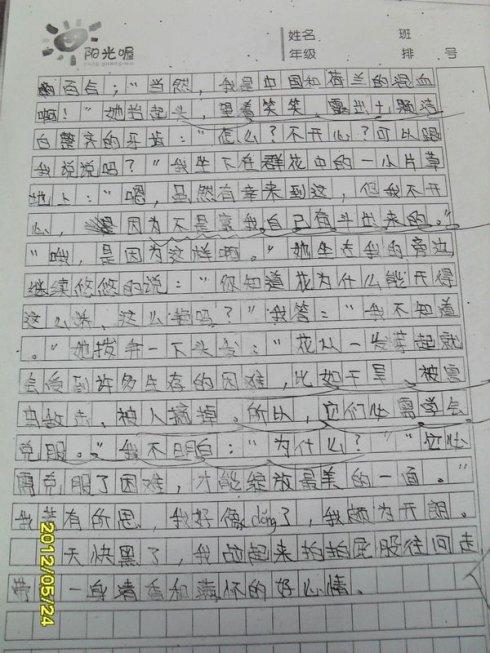 阳光喔
姓名 班
年级 排 号
百点；“当然，我是中国和荷兰的混血
啊！”她抬起头，望着笑笑，露出十颗洁
白整齐的牙齿：“怎么？不开心？可以跟
我说说吗？”我坐下在群花中的一小片草
地上：“嗯，虽然有幸来到这，但我不开
心，是因为不是靠我自己奋斗出来的。”
“哦，是因为这样啊。”她坐在我的旁边
继续悠悠的说：“你知道花为什么能开得
这么美，这么香吗？”我答：“我不知道
。”她拨弄一下头发：“花从一发芽起就
会受到许多生存的困难，比如干旱、被害
虫敲击、被人摘掉。所以，它们必需学会
克服。”我不明白：“为什么？”“它必
需克服了困难，才能绽放最美的一面。”
我若有所思，我好像dǒng了，我颇为开朗。
天快黑了，我站起来拍拍屁股往回走
带一身清香和满怀的好心情。
2012/05/24